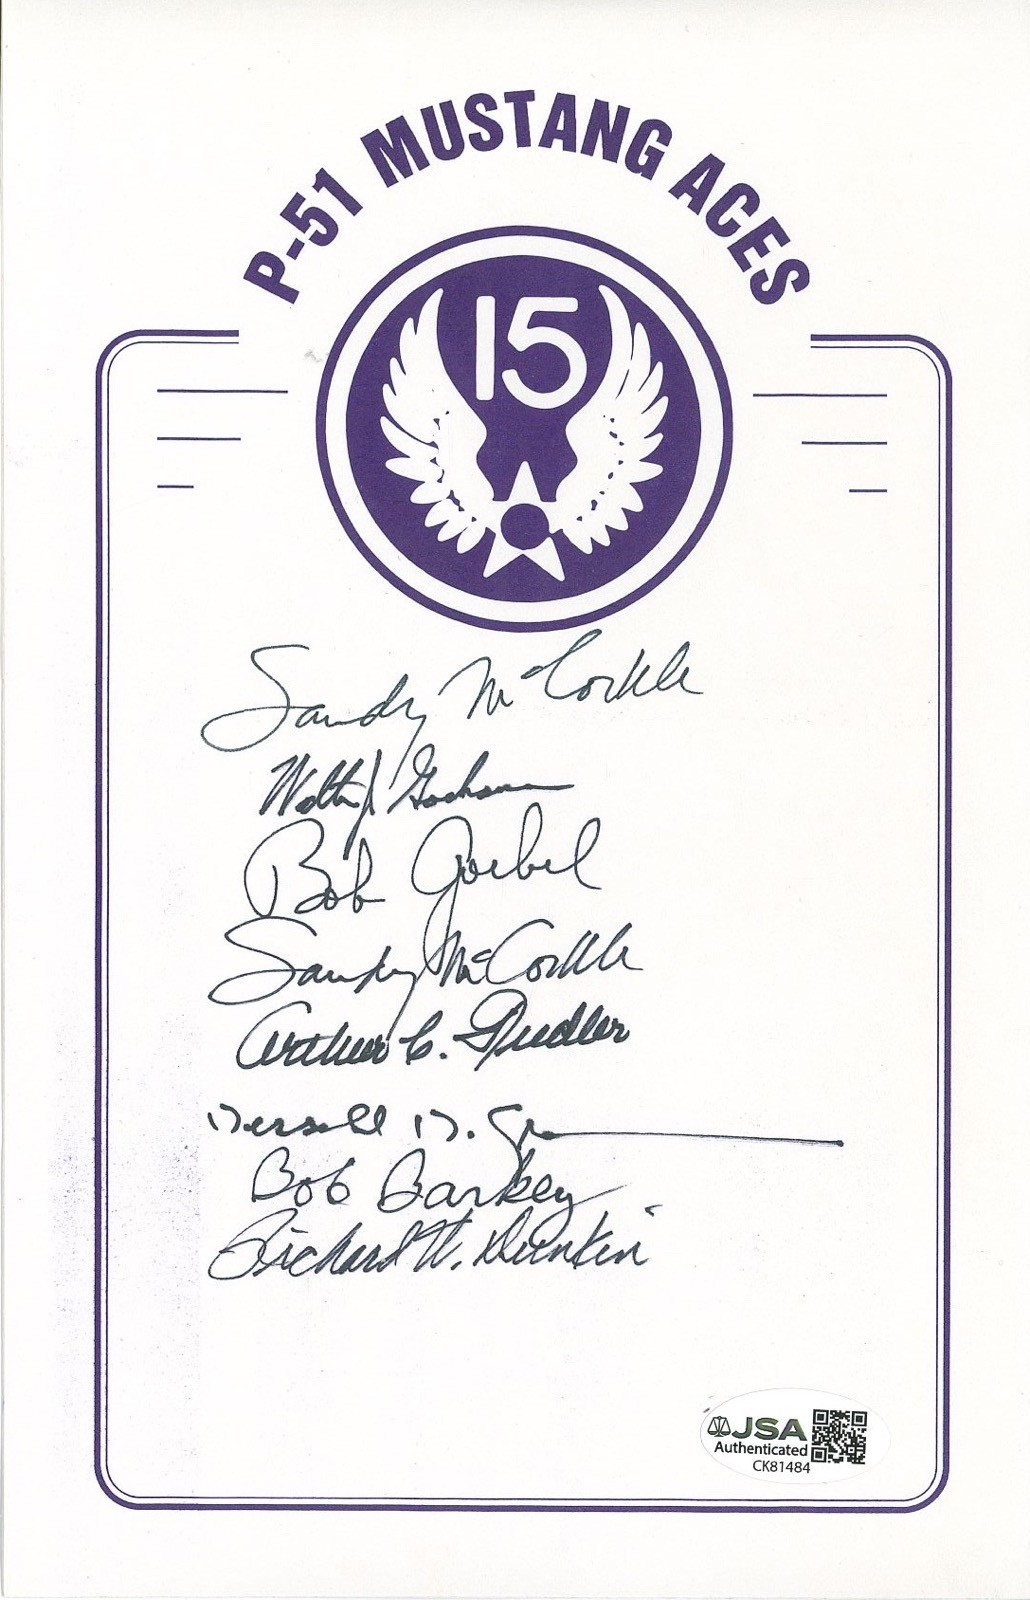 P-51 MUSTANG ACES
15
Sandy McCorkle
Walter J Goehausen
Bob Goebel
Sandy McCorkle
Arthur C. Fiedler
D.
Bob Barkey
Richard W. Dunkin
JSA
Authenticated
CK81484